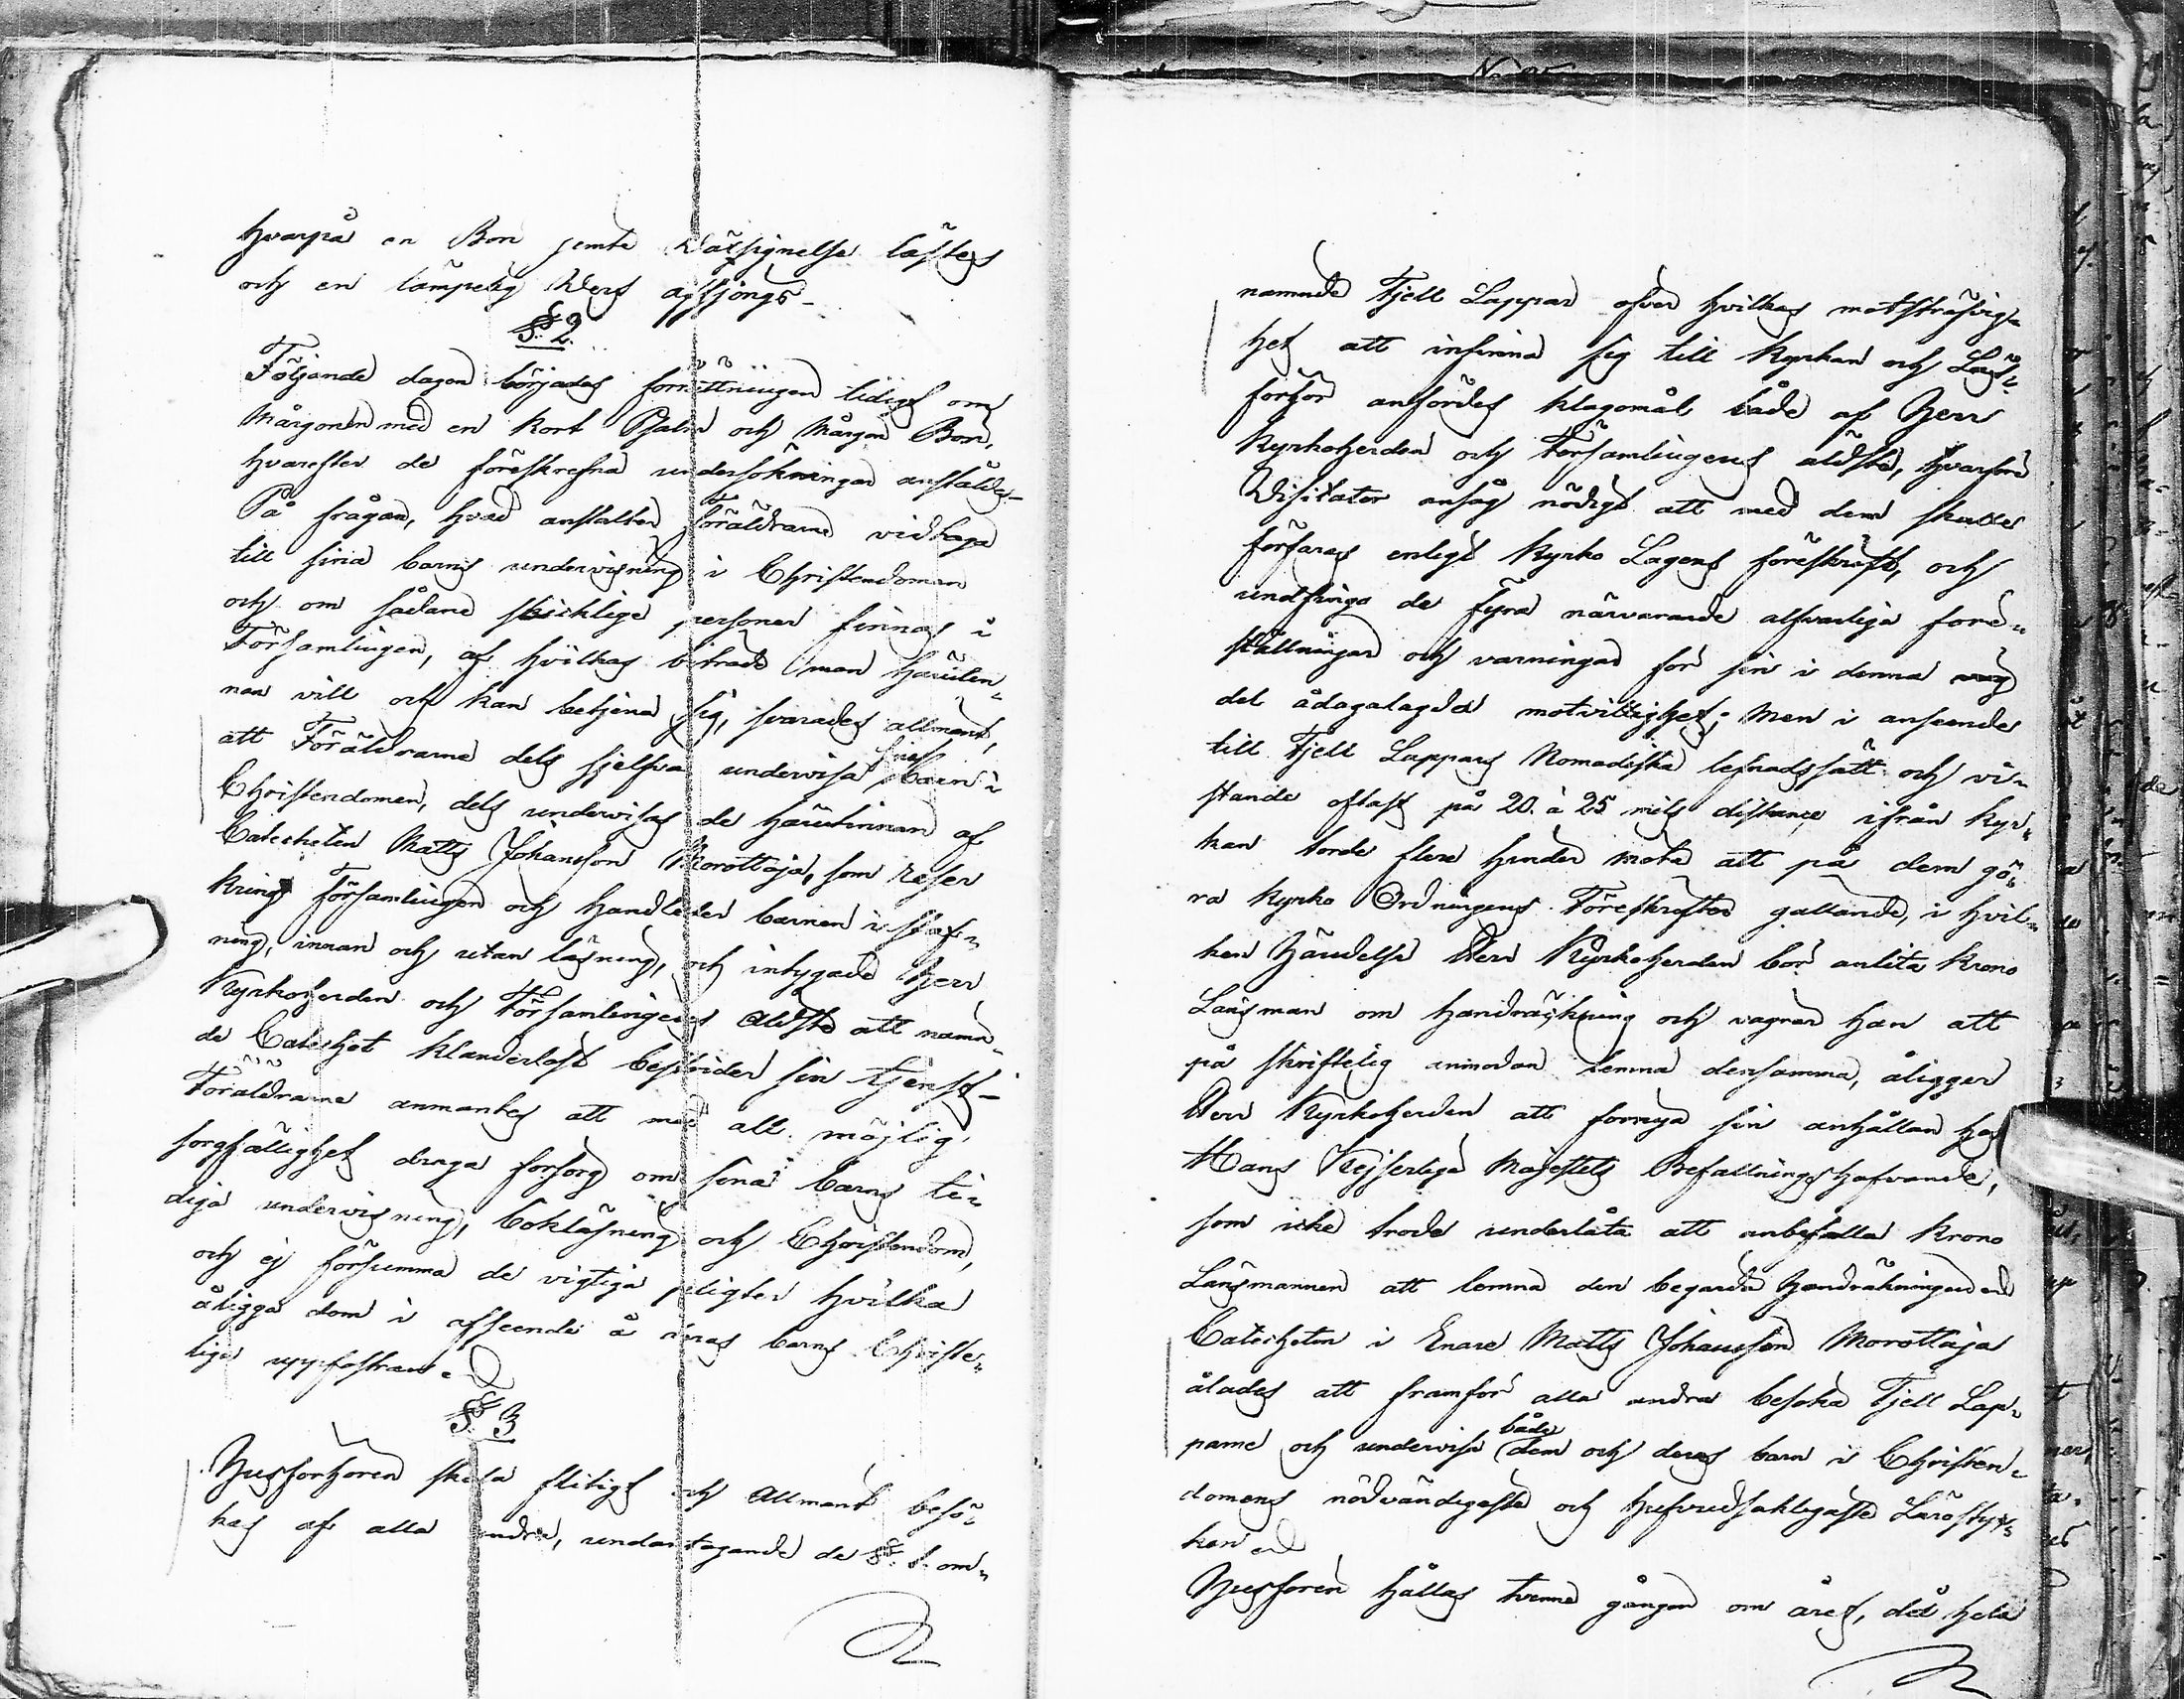 hvarpå en Bön jemte Wälsignelse lästes
och en lämpelig Wers afsjöngs –
§ 2.
Följande dagen börjades förrättningen tidigt om
Mårgonen med en kort Psalm och Mårgon Bön,
hvarefter de föreskrefna undersökningar anstäldes –
På frågan, hvad anstalter Föräldrarne vidtaga
till sina barns undervisning i Christendomen
och om sådane skicklige personer finnas i
Församlingen, af hvilkas biträde man härüten-
nan vill och kan betjena sig, svarades allmänt,
att Föräldrarne dels sjelfva undervisa sine barn i
Christendomen, dels undervisas de härutinnan af
Catecheten Matts Johansson Morottaja, som reser
kring Församlingen och handleder barnen i staf-
ning, innan och utan läsning, och intygade Herr
Kyrkoherden och Församlingens Äldste att nämn-
de Catechet klanderlöst bestrider sin tjenst –
Föräldrarne anmantes att med all möjlig
sorgfällighet draga försorg om sina barns ti-
diga undervisning, bokläsning och Christendom,
och ej försumma de vigtiga pligter hvilka
åligga dem i afseende å deras barns Christe-
liga uppfostran.
§ 3
Husförhören skola flitigt och Allmänt besö-
kas af alla andra, undantagande de §. 1. om-
nämnde Fjell Lappar öfver hvilkas motsträfvig-
het att infinna sig till Kyrkan och Läs-
förhör anfördes klagomål både af Herr
Kyrkoherden och Församlingens äldste, hvarföre
Visitator ansåg nödigt att med dem skulle
förfaras enligt Kyrko Lagens föreskrift, och
undfingo de fyra närvarande alfvarliga före-
ställningar och varningar för sin i denna
del ådagalagda motvillighet; Men i anseende
till Fjell Lappars Nomadiska lefnadssätt och vi-
stande oftast på 20. à 25 mils distance ifrån Kyr-
kan torde flere hinder möta att på dem gö-
ra Kyrko Ordningens Föreskrifter gällande, i hvil-
ken händelse Herr Kyrkoherden bör anlita Krono
Länsman om handräckning och vägrar han att
på skriftelig anmodan lemna densamma, åligger
Herr Kyrkoherden att förnya sin anhållan hos
Hans Kejserliga Majestets Befallningshafvande,
som icke torde underlåta att anbefalla Krono
Länsmannen att lemna den begärda handräkningen
Catecheten i Enare Matts Johansson Morottaja
ålades att framför alla andra besöka Fjell Lap-
parne och undervisa både dem och deras barn i Christen-
domens nödvändigaste och hufvudsakligaste Lärosty-
ken
Husförhören hållas tvenne gångor om året, då hela